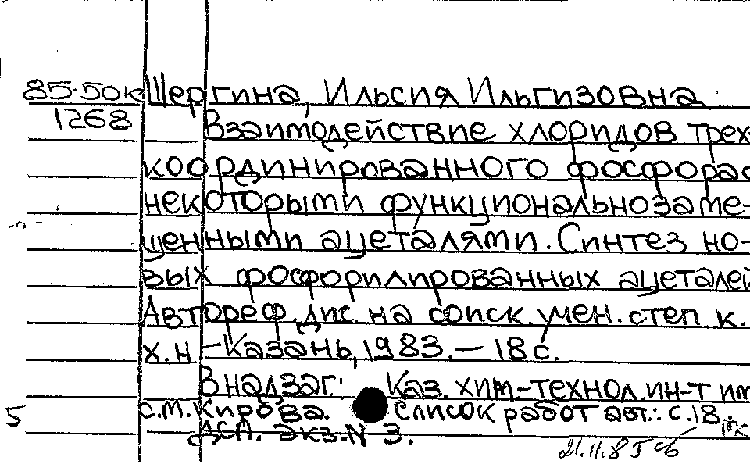 85-50к Шергина, Ильсия Ильгизовна
1268 Взаимодействие хлоридов трех-
координированного фосфора с
некоторыми функциональнозаме-
щенными ацеталями. Синтез но-
вых фосфорилированных ацеталей
Автореф. дис. на соиск. учен. степ к.
х.н. - Казань, 1983. - 18 с.
В надзаг: Каз. хим-технол. ин-т им
5 С.М. Кирова. Список работ авт.: с. 18
ДСП. Экз. N 3.